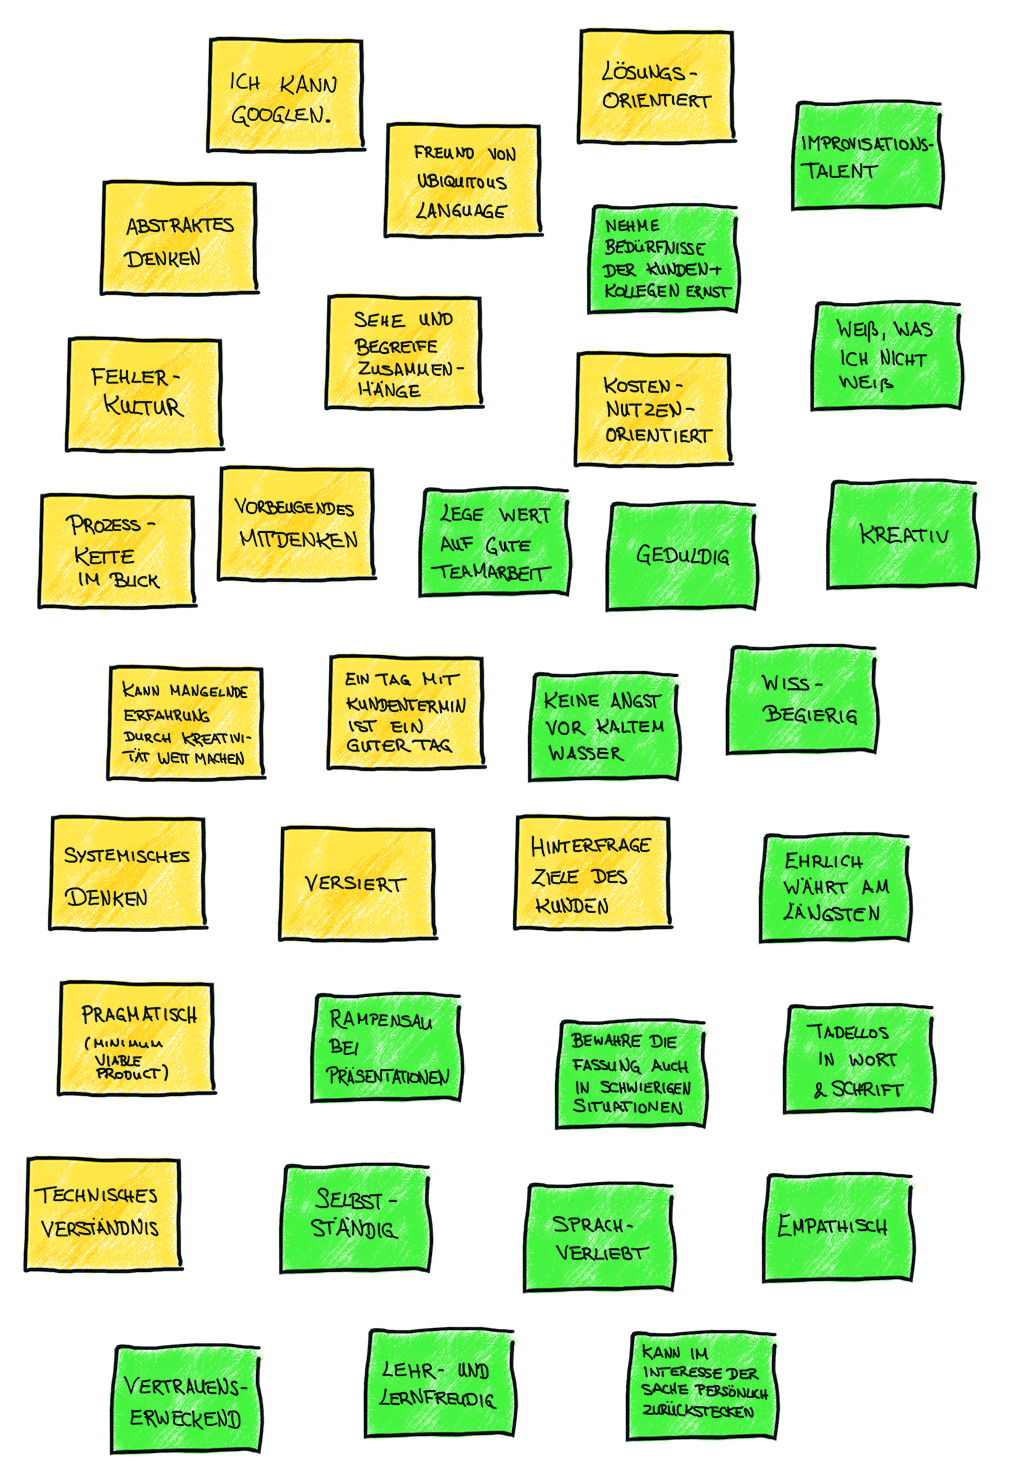 ICH KANN
GOOGLEN.
LÖSUNGS-
ORIENTIERT
IMPROVISATIONS-
TALENT
FREUND VON
UBIQUITOUS
LANGUAGE
ABSTRAKTES
DENKEN
NEHME
BEDÜRFNISSE
DER KUNDEN+
KOLLEGEN ERNST
SEHE UND
BEGREIFE
ZUSAMMEN-
HÄNGE
WEIß, WAS
ICH NICHT
WEIß
FEHLER-
KULTUR
KOSTEN-
NUTZEN-
ORIENTIERT
PROZESS-
KETTE
IM BLICK
VORBEUGENDES
MITDENKEN
LEGE WERT
AUF GUTE
TEAMARBEIT
GEDULDIG
KREATIV
KANN MANGELNDE
ERFAHRUNG
DURCH KREATIVI-
TÄT WETT MACHEN
EIN TAG MIT
KUNDENTERMIN
IST EIN
GUTER TAG
KEINE ANGST
VOR KALTEM
WASSER
WISS-
BEGIERIG
SYSTEMISCHES
DENKEN
VERSIERT
HINTERFRAGE
ZIELE DES
KUNDEN
EHRLICH
WÄHRT AM
LÄNGSTEN
PRAGMATISCH
(MINIMUM
VIABLE
PRODUCT)
RAMPENSAU
BEI
PRÄSENTATIONEN
BEWAHRE DIE
FASSUNG AUCH
IN SCHWIERIGEN
SITUATIONEN
TADELLOS
IN WORT
& SCHRIFT
TECHNISCHES
VERSTÄNDNIS
SELBST-
STÄNDIG
SPRACH-
VERLIEBT
EMPATHISCH
VERTRAUENS-
ERWECKEND
LEHR- UND
LERNFREUDIG
KANN IM
INTERESSE DER
SACHE PERSÖNLICH
ZURÜCKSTECKEN